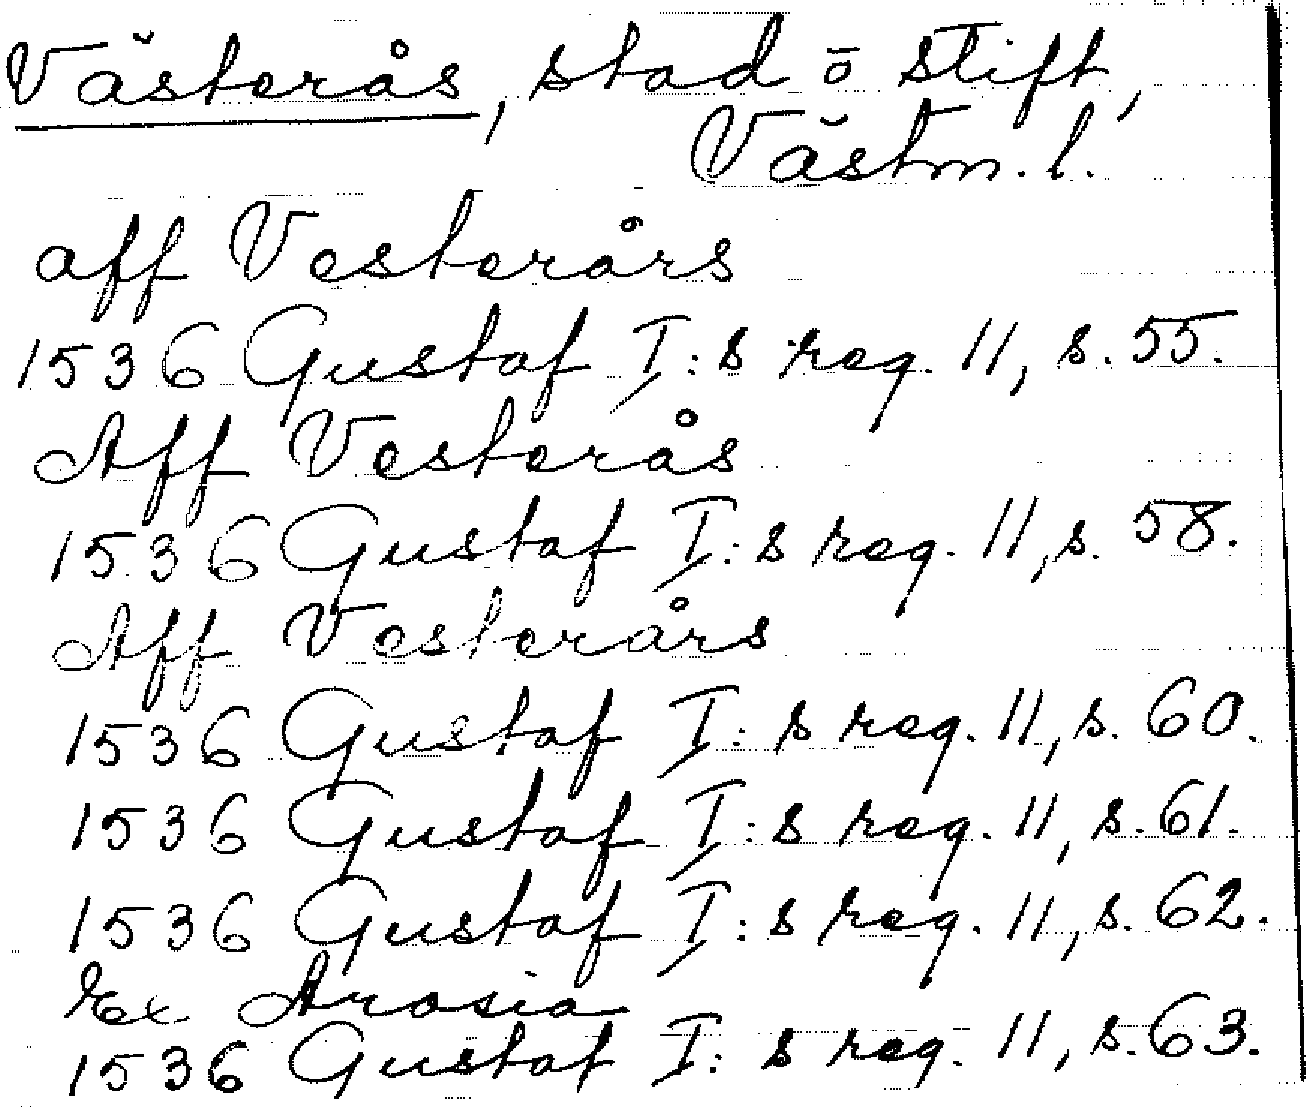 Västerås, stad ō stift,
Västm. l.
aff Vesterårs
1536 Gustaf I:s reg. 11, s. 55.
Aff Vesterås
1536 Gustaf I:s reg. 11, s. 58.
Aff Vesterårs
1536 Gustaf I:s reg. 11, s. 60.
1536 Gustaf I:s reg. 11, s. 61.
1536 Gustaf I:s reg. 11, s. 62.
Ex Arosia
1536 Gustaf I:s reg. 11, s. 63.